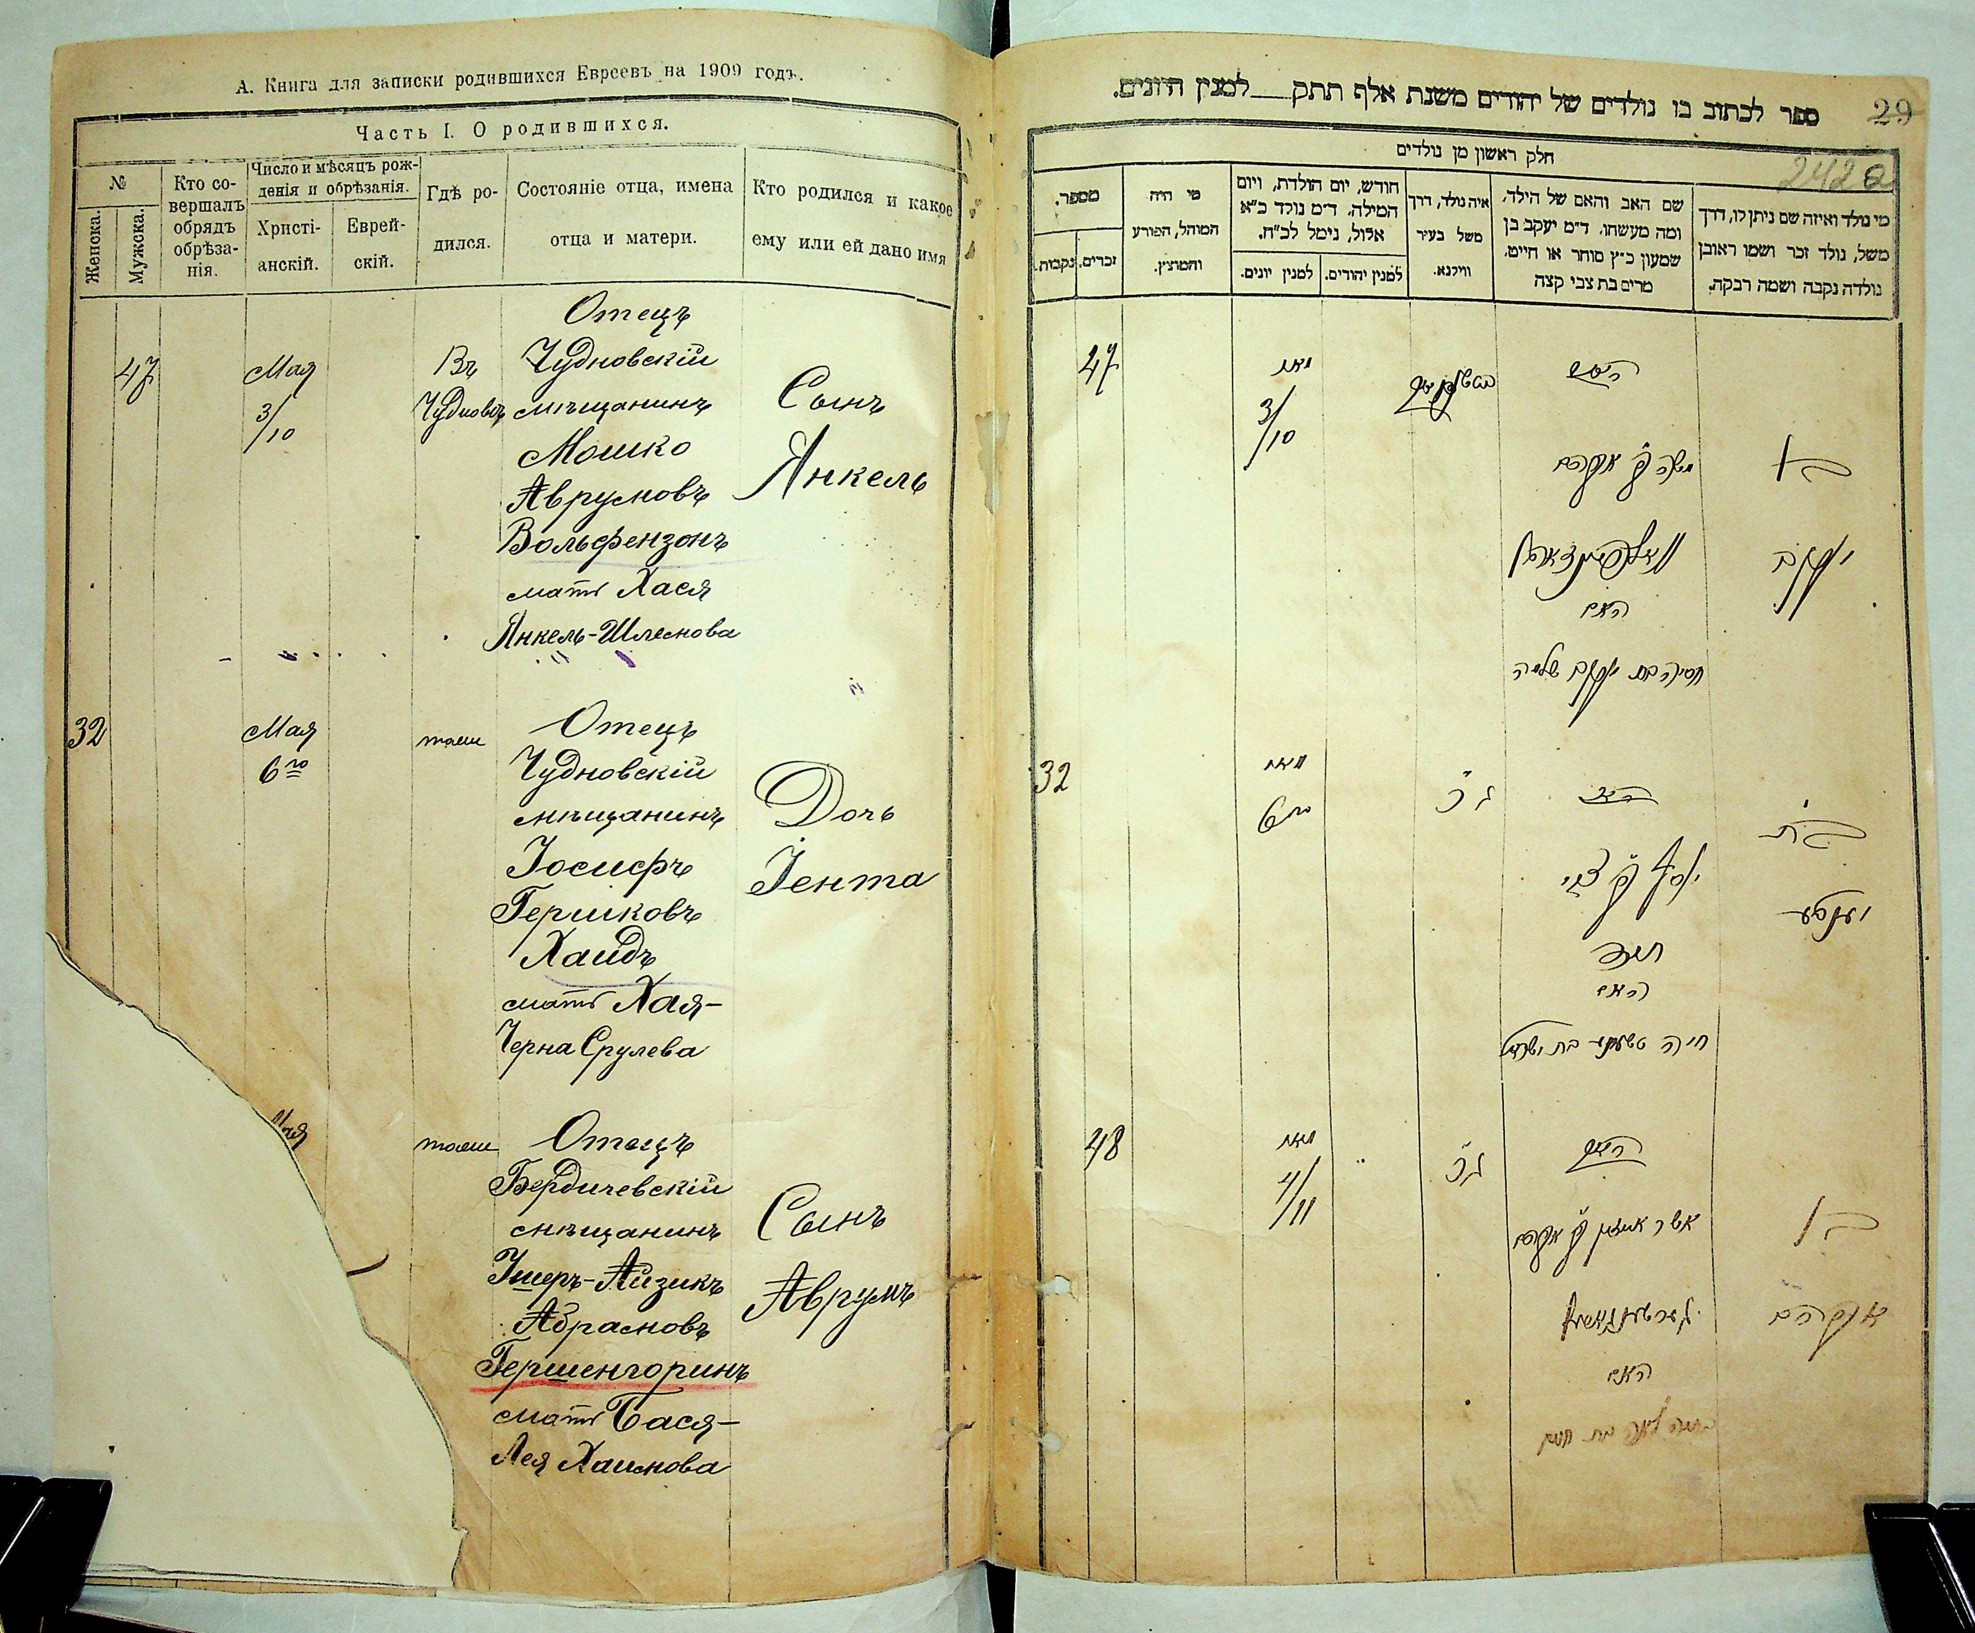 А. Книга для записки родившихся Евреевъ на 1909 годъ.
Часть I. О родившихся.
№
Женска.
Мужска.
Кто со-
вершалъ
обрядъ
обрѣза-
нія.
Число и мѣсяцъ рож-
денія и обрѣзанія.
Христі-
анскій.
Еврей-
скій.
Гдѣ ро-
дился.
Состояніе отца, имена
отца и матери.
Кто родился и какое
ему или ей дано имя
47
Мая
3/10
Въ
Чудновѣ
Отецъ
Чудновскій
мѣщанинъ
Мошко
Аврумовъ
Вольфензонъ
мать Хася
Янкель-Шлемова
Сынъ
Янкель
32
Мая
6го
тамъ
Отецъ
Чудновскій
мѣщанинъ
Іосифъ
Гершковъ
Хаидъ
мать Хая-
Черна Срулева
Дочь
Іента
Мая
тамъ
Отецъ
Бердичевскій
мѣщанинъ
Ушеръ-Айзикъ
Абрамовъ
Гершенгоринъ
мать Бася-
Лея Хаимова
Сынъ
Аврумъ
ספר לכתוב בו נולדים של יהודים משנת אלף תתק__למנין היונים.
29
2422
חלק ראשון מן נולדים
מי נולד ואיזה שם ניתן לו, דרך
משל, נולד זכר ושמו ראובן
נולדה נקבה ושמה רבקה.
שם האב והאם של הילד,
ומה מעשהו. ד"מ יעקב בן
שמעון כ"ץ סוחר או חייט.
מרים בת צבי קצה
איה נולד, דרך
משל בעיר
ווילנא.
חודש, יום הולדת, ויום
המילה. ד"מ נולד כ"א
אלול, נימל לכ"ח.
למנין יהודים.
למנין יונים.
מי היה
המוהל, הפורע
והמוצץ.
מספר.
זכרים.
נקבות.
47
מאי
3/10
האב
משה בן אברהם
וואלפענזאהן
האם
חסיה בת יעקב שלמה
בן
יעקב
32
מאי
6
האב
יוסף בן צבי
האם
בת
יענטע
48
מאי
4/11
האב
אשר אייזיק בן אברהם
האם
בן
אברהם